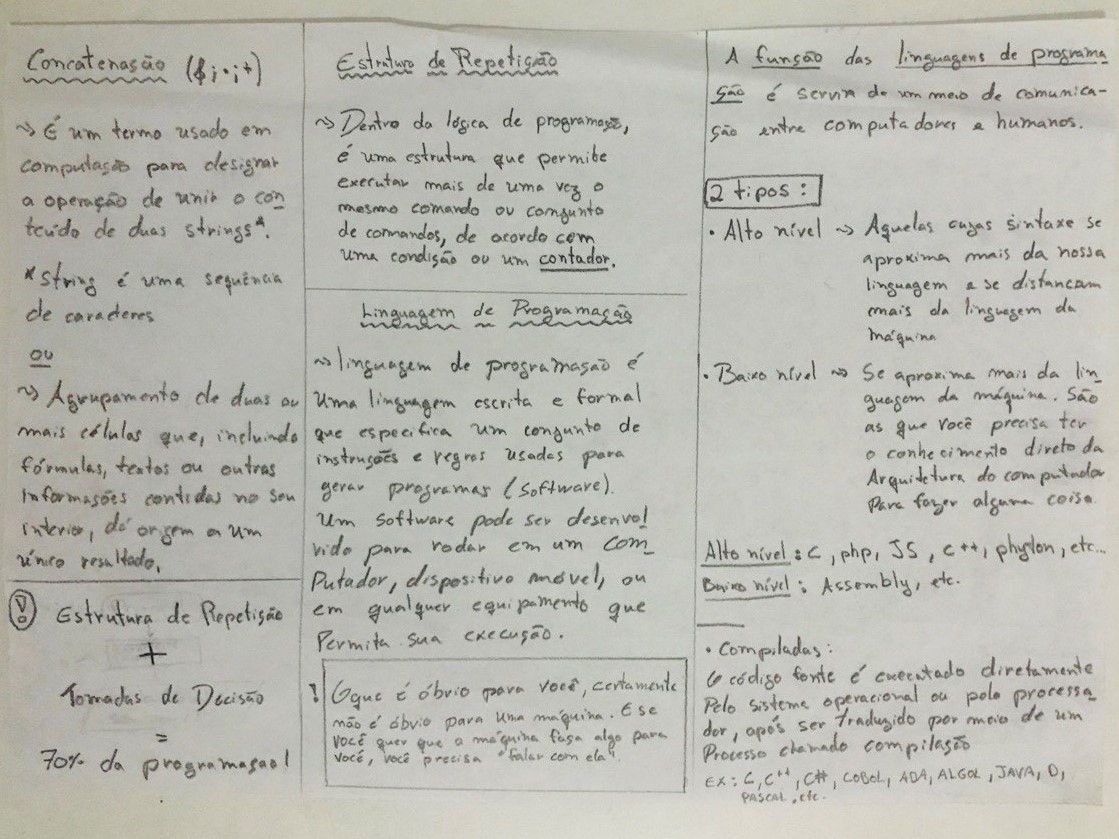 Concatenasão (&;•;+)
~> É um termo usado em
computasão para designar
a operação de unir o con
teúdo de duas strings*.
*String é uma sequência
de caracteres
ou
~> Agrupamento de duas ou
mais células que, incluindo
fórmulas, textos ou outras
informasões contidas no seu
interior, dá origem a um
único resultado.
Estrutura de Repetisão
+
Tomadas de Decisão
=
70% da programasao!
Estrutura de Repetisão
~> Dentro da lógica de programasão,
é uma estrutura que permite
executar mais de uma vez o
mesmo comando ou comjunto
de comandos, de acordo com
uma condição ou um contador.
Linguagem de Programasão
~> linguagem de programasão é
uma linguagem escrita e formal
que especifica um conjunto de
instrusões e regras usadas para
gerar programas (Software).
Um software pode ser desenvol
vido para rodar em um com
putador, dispositivo móvel, ou
em qualquer equipamento que
Permita sua execusão.
! Oque é óbvio para você, certamente
não é óbvio para uma máquina. E se
você quer que a máquina fasa algo para
você, você precisa "falar com ela".
A funsão das linguagens de programa
são é servir de um meio de comunica-
são entre computadores e humanos.
2 tipos:
• Alto nível ~> Aquelas cujas sintaxe se
aproxima mais da nossa
linguagem e se distanciam
mais da linguagem da
máquina
• Baixo nível ~> Se aproxima mais da lin
guagem da máquina. São
as que você precisa ter
o conhecimento direto da
Arquitetura do computador
Para fazer alguma coisa.
Alto nível: C, php, JS, C++, phyton, etc...
Baixo nível: Assembly, etc.
• Compiladas:
O código fonte é executado diretamente
Pelo sistema operacional ou pelo processa
dor, após ser traduzido por meio de um
Processo chamado compilasão
EX: C, C++, C#, COBOL, ADA, ALGOL, JAVA, D,
PASCAL, etc.